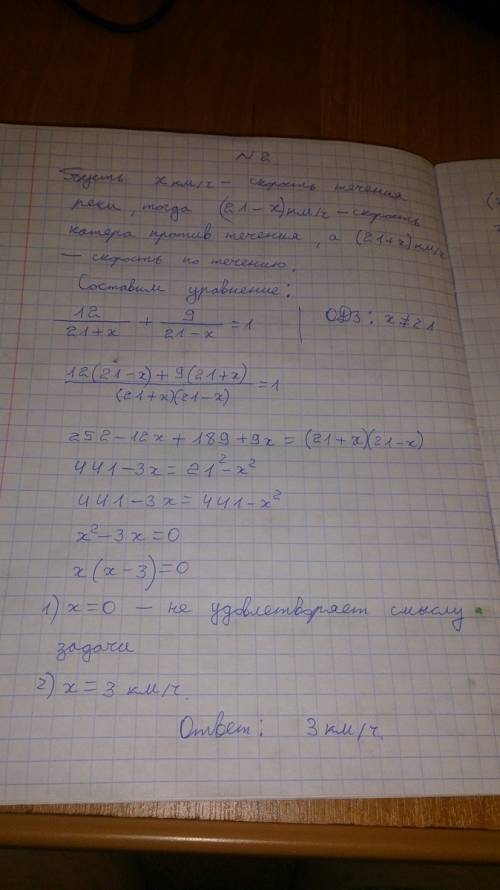 N 2
Пусть x км/ч – скорость течения
реки, тогда (21-x) км/ч – скорость
катера против течения, а (21+x) км/ч
– скорость по течению.
Составим уравнение:
12/(21+x) + 9/(21-x) = 1 | ОДЗ: x≠21
(12(21-x)+9(21+x))/((21+x)(21-x)) = 1
252-12x+189+9x=(21+x)(21-x)
441-3x=21²-x²
441-3x=441-x²
x²-3x=0
x(x-3)=0
1) x=0 – не удовлетворяет смыслу
задачи
2) x=3 км/ч.
Ответ: 3 км/ч.